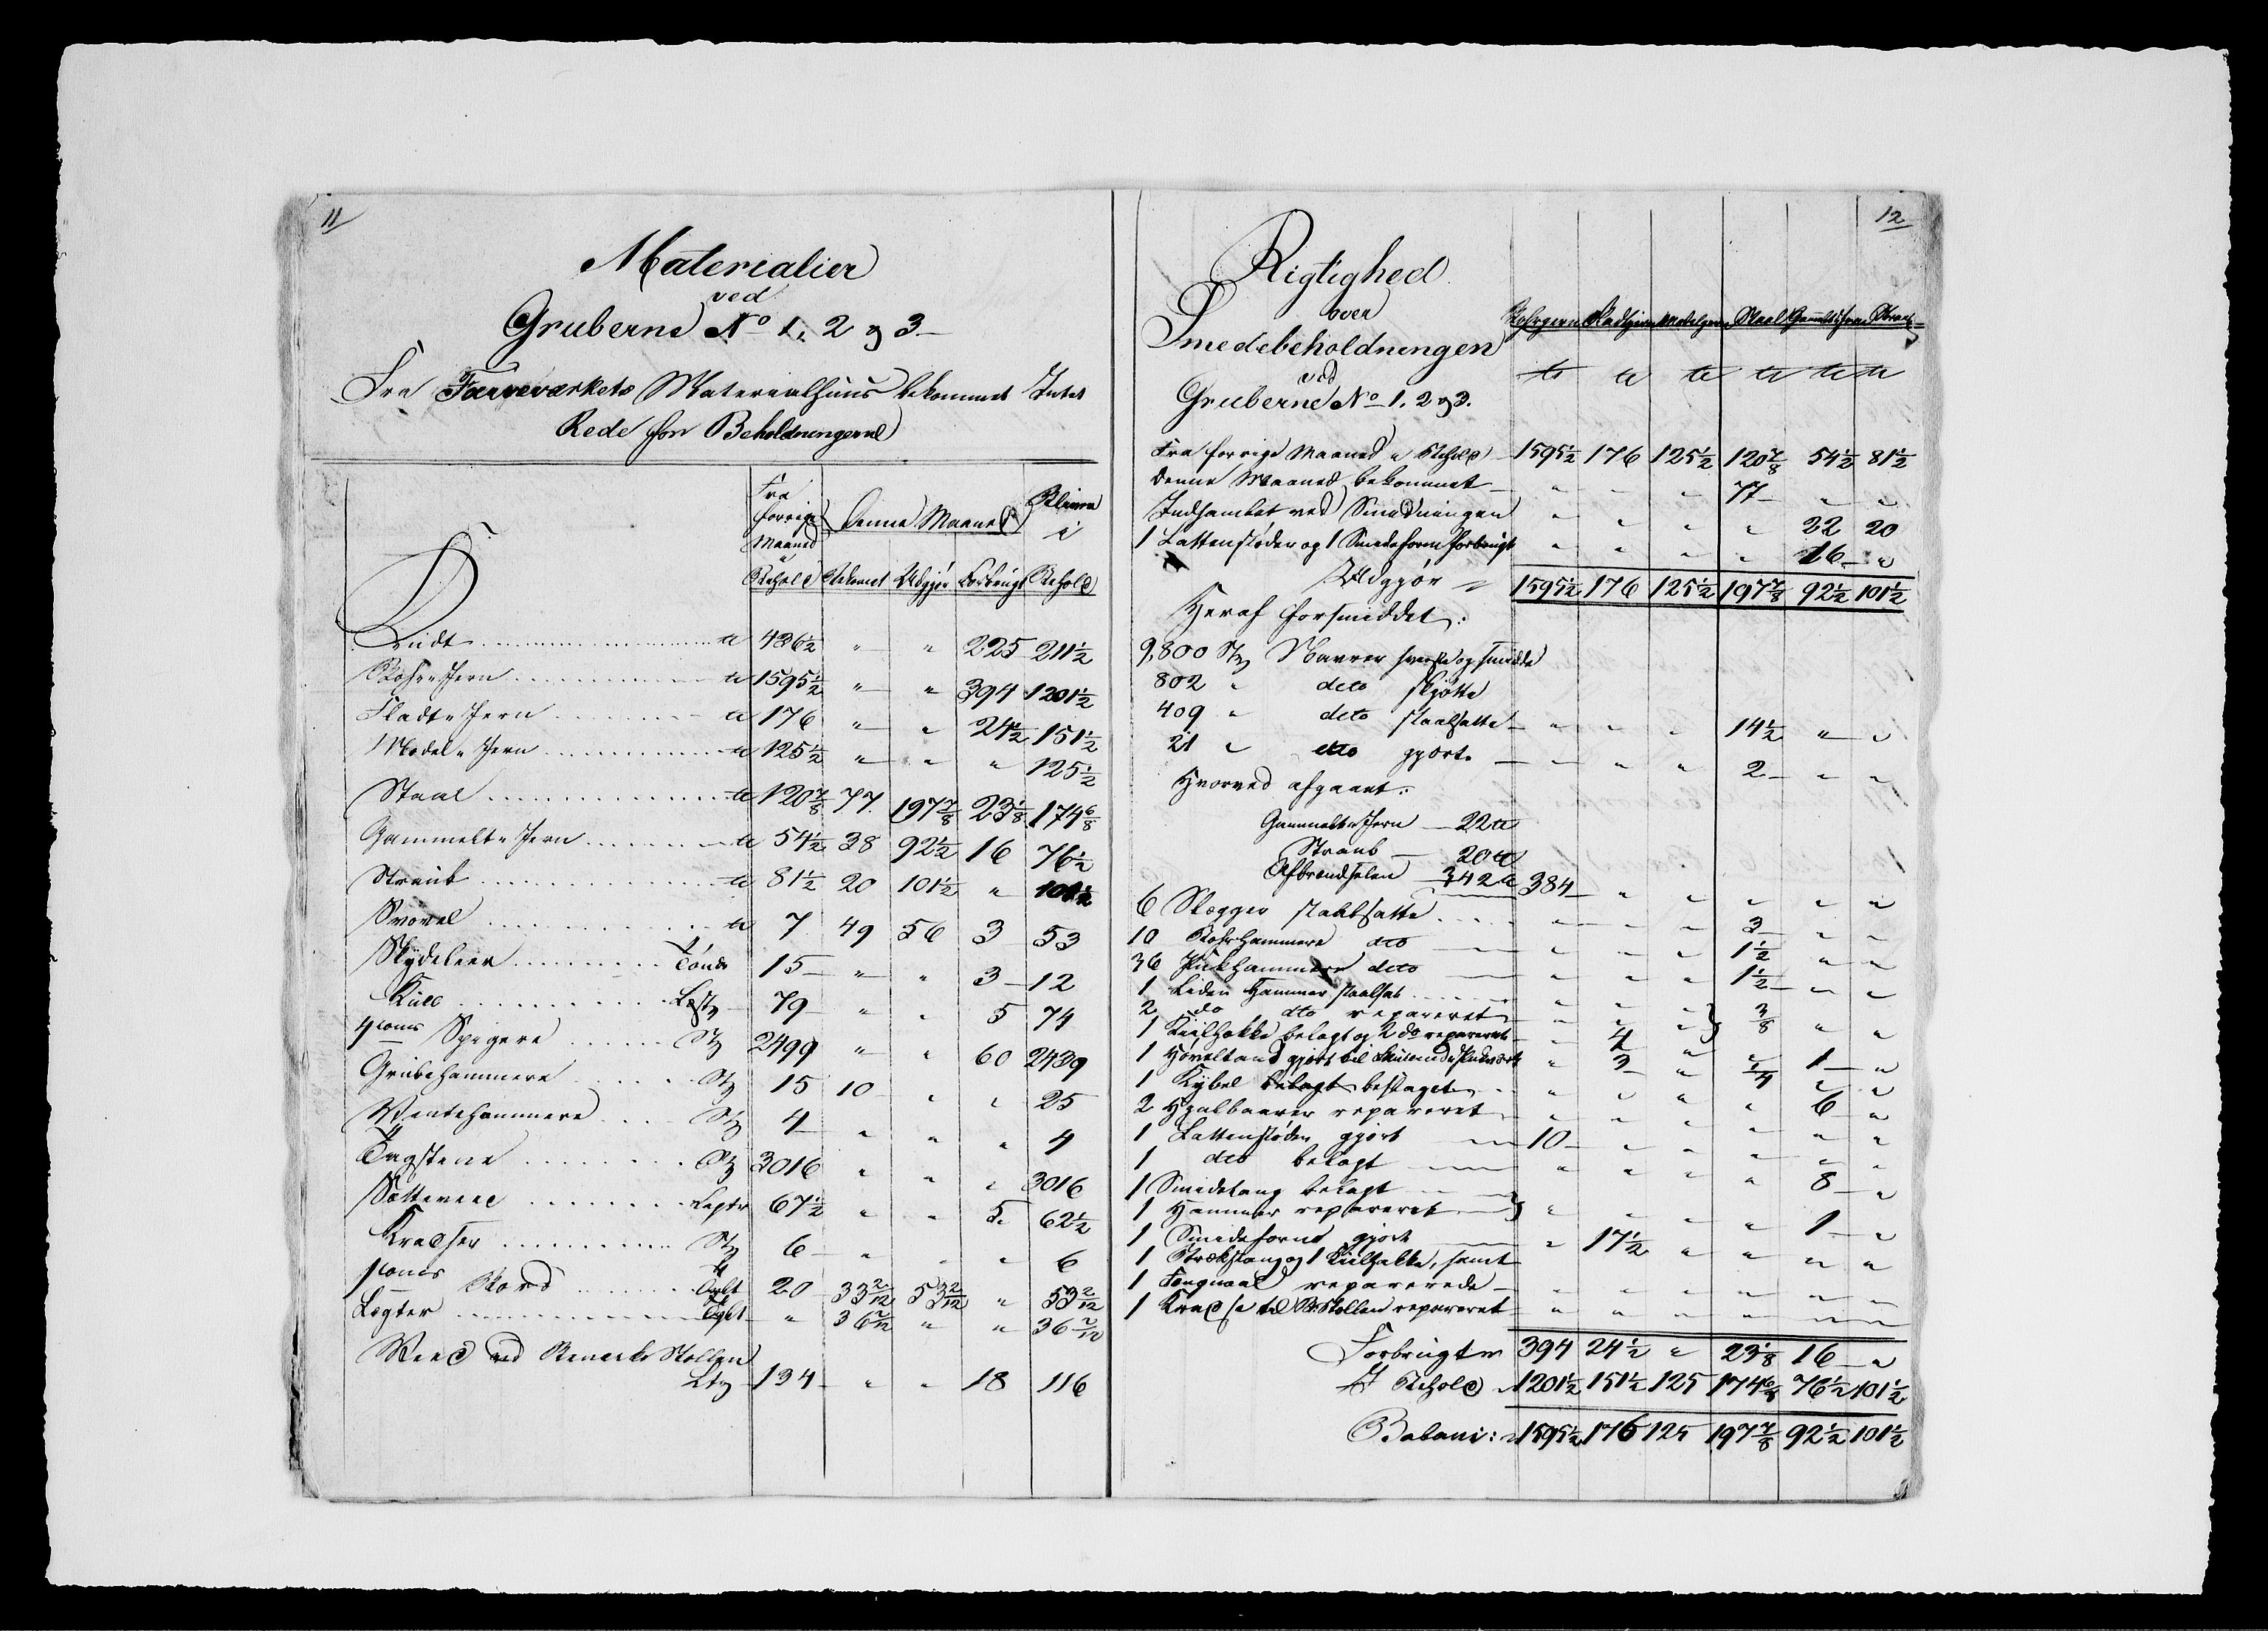 11
Materialier
ved
Gruberne No 1, 2 og 3
Fra Farveværkets Materialhuus bekommet Intet
Rede for Beholdningerne
Fra forrige Maaned i Behold | Denne Maaned | Bliver i
Bekomet | Udgjør | Forbrugt | Behold
Krudt ℔ 436½ " " 225 211½
Bohr-Jern ℔ 1595½ " " 394 1201½
Fladt-Jern ℔ 176 " " 24½ 151½
Model-Jern ℔ 125½ " " " 125½
Staal ℔ 120⅞ 77 197⅞ 23⅛ 174 6/8
Gammelt-Jern ℔ 54½ 38 92½ 16 76½
Straub ℔ 81½ 20 101½ " 101½
Svovel ℔ 7 49 56 3 53
Skydeleer Tønde 15 " " 3 12
Kull Læst 79 " " 5 74
4 toms Spigere St 2499 " " 60 2439
Grubehammere St 15 10 " " 25
Ventehammere St 4 " " " 4
Tagstene St 3016 " " " 3016
Sætteveed 67½ " " 5 62½
Kradser St 6 " " " 6
1 toms Bord Tylt 20 33 2/12 53 2/12 " 53 2/12
Lægter Tylt " 36 2/12 " " 36 2/12
Veed ved Stollen
134 " " 18 116
12
Rigtighed
over
Smedebeholdningen
ved
Gruberne No 1, 2 og 3.
Bohrjern Fladtjern Modeljern Staal Gammelt Jern Straub
℔ ℔ ℔ ℔ ℔ ℔
Fra forrige Maaned i Behold 1595½ 176 125½ 120⅞ 54½ 81½
Denne Maaned bekommet " " " 77 " "
Indsamlet ved Smedningen " " " " 22 20
1 Lattenfløder og 1 Smedeform forbrugt " " " " 16 "
Udgjør 1595½ 176 125½ 197⅞ 92½ 101½
Heraf forsmiddet:
9,800 St Navrer hvæsse og smidde
802 " dito skjøtte
409 " dito staalsatte " " " 14½ " "
21 " dto gjort " " " 2 " "
Hvorved afgaaet:
Gammelt-Jern 22 ℔
Straub 20 ℔
Afbrændselen 342 ℔ 384 " " " " "
6 Slægger staalsatte " " " 3 " "
10 Bohrhammere dto " " " 1½ " "
36 Pukhammere dito " " " 1½ " "
1 Leden Hammer staalsat
2 do dto repareret " " " 3/8 " "
1 Kiilhakke belagt og 2 do repareret " 4 "
1 Høveltand gjort til Skuurud " 3 " ¼ 1 "
1 Kybel belagt beslaget " " " " 6 "
2 Hjulbaarer repareret " " " " " "
1 Lattenfløder gjort 10 " " " " "
1 dto belagt " " " " 8 "
1 Smedetang belagt
1 Hammer repareret " " " " 1 "
1 Smedeform gjort " 17½ " " " "
1 Strækstang og 1 Kiilhakke, samt
1 Fængnaal reparerede " " " " " "
1 Kradse til Stollen repareret " " " " " "
Forbrugt 394 24½ " 23⅛ 16 "
I Behold 1201½ 151½ 125 174 6/8 76½ 101½
Balanc: 1595½ 176 125 197⅞ 92½ 101½